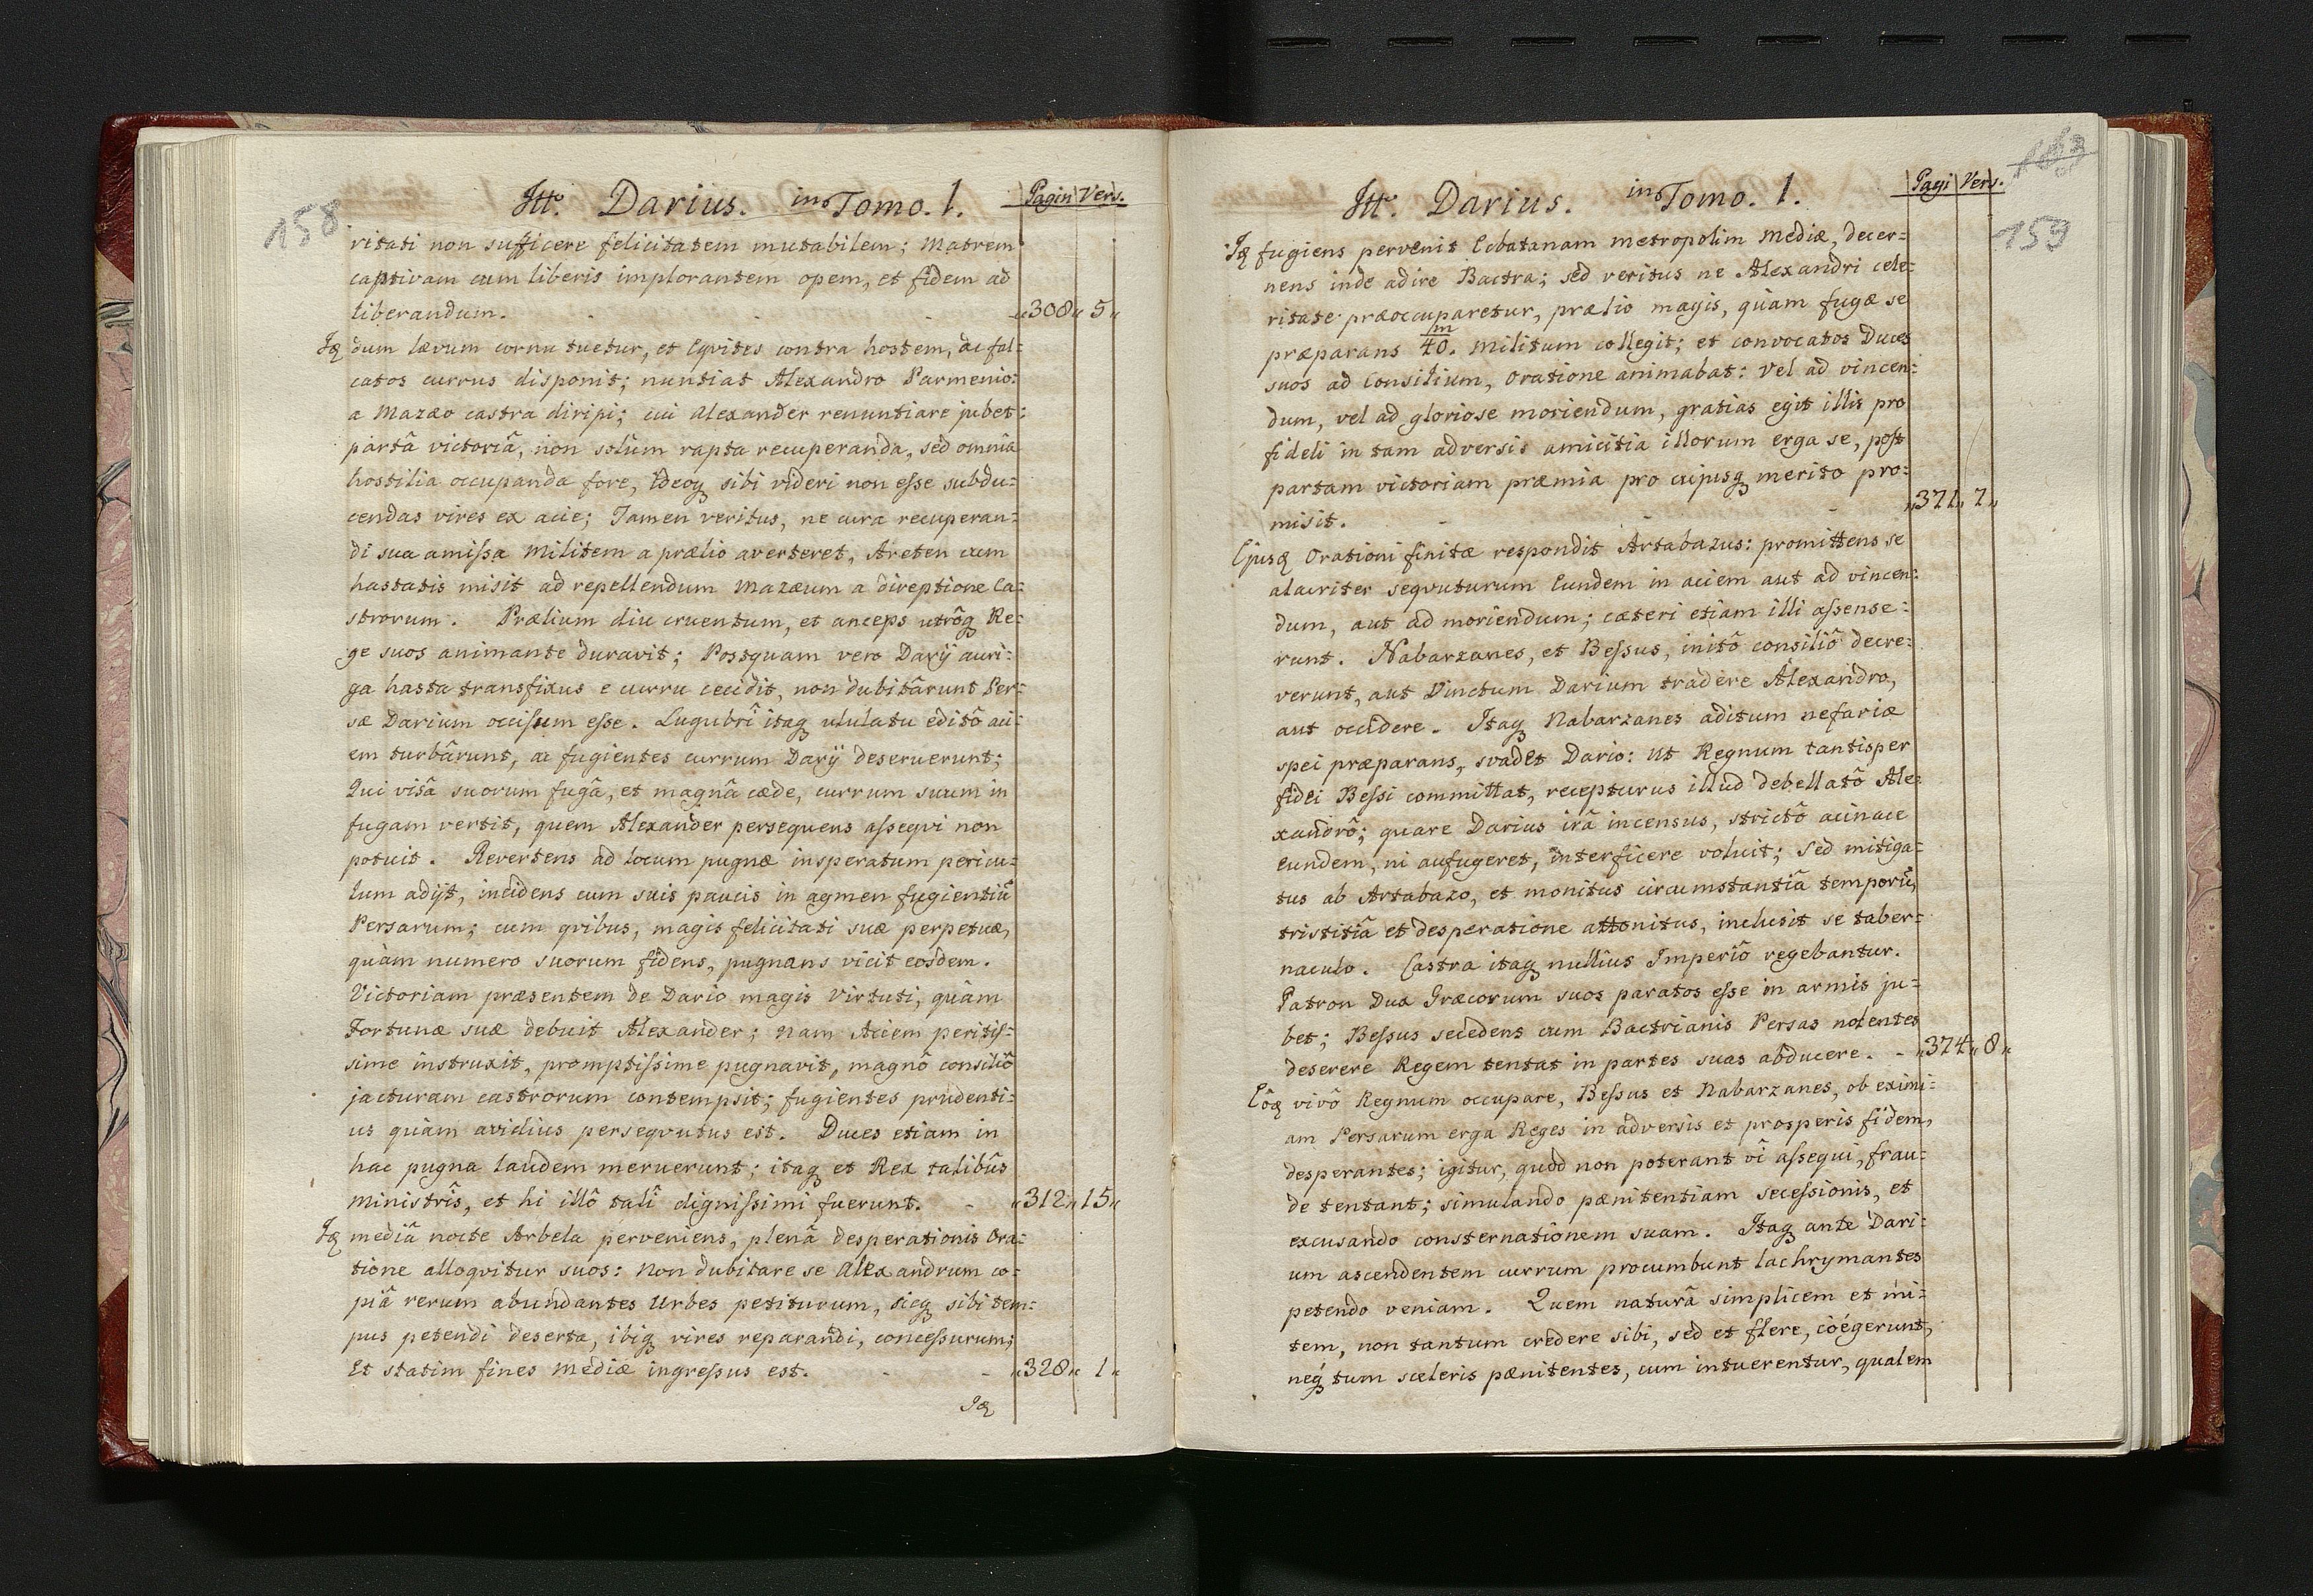 158
Itt. Darius. in Tomo. 1. Pagin Vers.
ritati non sufficere felicitatem mutabilem; Matrem
captivam cum liberis implorantem opem, et fidem ad
liberandum. - - - „308„ 5„
Iq dum lævum cornu tuetur, et Eqvites contra hostem, ac fal:
catos currus disponit; nuntiat Alexandro Parmenio:
a Mazæo castra diripi; cui Alexander renuntiare jubet:
partâ victoriâ, non solùm rapta recuperanda, sed omnia
hostilia occupanda fore, Ideoq sibi videri non eſse subdu:
cendas vires ex acie; Tamen veritus, ne cura recuperan:
di sua amiſsa Militem a prælio averteret, Areten cum
hastatis misit ad repellendum Mazæum a direptione Ca:
strorum. Prælium diu cruentum, et anceps utrôq Re:
ge suos animante duravit; Postquam vero Darÿ auri:
ga hasta transfixus e curru cecidit, non dubitârunt Per:
sæ Darium occisum eſse. Lugubrî itaq ululatu editô aci:
em turbârunt, ac fugientes currum Darÿ deseruerunt;
Qui visâ suorum fugâ, et magnâ cæde, currum suum in
fugam vertit, quem Alexander persequens aſseqvi non
potuit. Revertens ad locum pugnæ insperatum pericu:
lum adÿt, incidens cum suis paucis in agmen fugientiū
Persarum; cum qvibus, magis felicitati suæ perpetuæ,
quàm numero suorum fidens, pugnans vicit eosdem.
Victoriam præsentem de Dario magis Virtuti, quàm
Fortunæ suæ debuit Alexander; nam Aciem peritiſ:
sime instruxit, promptiſsime pugnavit, magnô consiliô
jacturam castrorum contempsit; fugientes prudenti:
us quàm avidius perseqvutus est. Duces etiam in
hac pugna laudem meruerunt; itaq et Rex talibûs
Ministrîs, et hi illô talî digniſsimi fuerunt. - „312„15„
Iq mediâ nocte Arbela perveniens, plenâ desperationis Ora:
tione alloqvitur suos: Non dubitare se Alexandrum co:
piâ rerum abundantes Urbes petiturum, sicq sibi tem:
pus petendi deserta, ibiq vires reparandi, conceſsurum;
Et statim fines Mediæ ingreſsus est. - - „328„ 1„
Iq
163
159
Itt. Darius. in Tomo. 1. Pagi Vers.
Iq fugiens pervenit Ecbatanam metropolim Mediæ, decer:
nens inde adire Bactra; sed veritus ne Alexandri cele:
ritate præoccuparetur, prælio magis, quàm fugæ se
præparans 40. m Militum collegit; et convocatos Duces
suos ad Consilium, Oratione animabat: Vel ad vincen:
dum, vel ad gloriose moriendum, gratias egit illis pro
fideli in tam adversis amicitia illorum erga se, post
partam victoriam præmia pro cujusq merito pro:
misit. - - - „371„ 7„
Ejusq Orationi finitæ respondit Artabazus: promittens se
alacriter seqvuturum Eundem in aciem aut ad vincen:
dum, aut ad moriendum; cæteri etiam illi aſsense:
runt. Nabarzanes, et Beſsus, initô consiliô decre:
verunt, aut Vinctum Darium tradere Alexandro,
aut occidere. Itaq Nabarzanes aditum nefariæ
spei præparans, svadet Dario: Ut Regnum tantisper
fidei Beſsi committat, recepturus illud debellatô Ale:
xandrô; quare Darius irâ incensus, strictô acinace
eundem, ni aufugeret, interficere voluit; Sed mitiga:
tus ab Artabazo, et monitus circumstantiâ temporū,
tristitiâ et desperatione attonitus, inclusit se taber:
naculo. Castra itaq nullius Imperiô regebantur.
Patron Dux Græcorum suos paratos eſse in armis ju:
bet; Beſsus secedens cum Bactrianis Persas nolentes
deserere Regem tentat in partes suas abducere. - „374„ 8„
Eôq vivô Regnum occupare, Beſsus et Nabarzanes, ob eximi:
am Persarum erga Reges in adversis et prosperis fidem,
desperantes; igitur, quod non poterant vî aſsequi, frau:
de tentant; simulando pænitentiam seceſsionis, et
excusando consternationem suam. Itaq ante Dari:
um ascendentem currum procumbunt lachrymantes
petendo veniam. Quem naturâ simplicem et mi:
tem, non tantum credere sibi, sed et flere, coëgerunt,
neq tum sceleris pænitentes, cum intuerentur, qualem